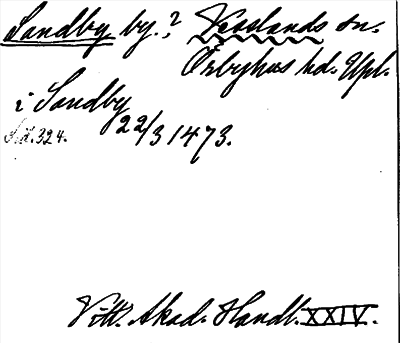 Sandby by.? Vesslands sn.
Örbyhus hd. Upl.
i Sandby
22/3 1473.
Sid. 324.
Vitt. Akad. Handl. XXIV.